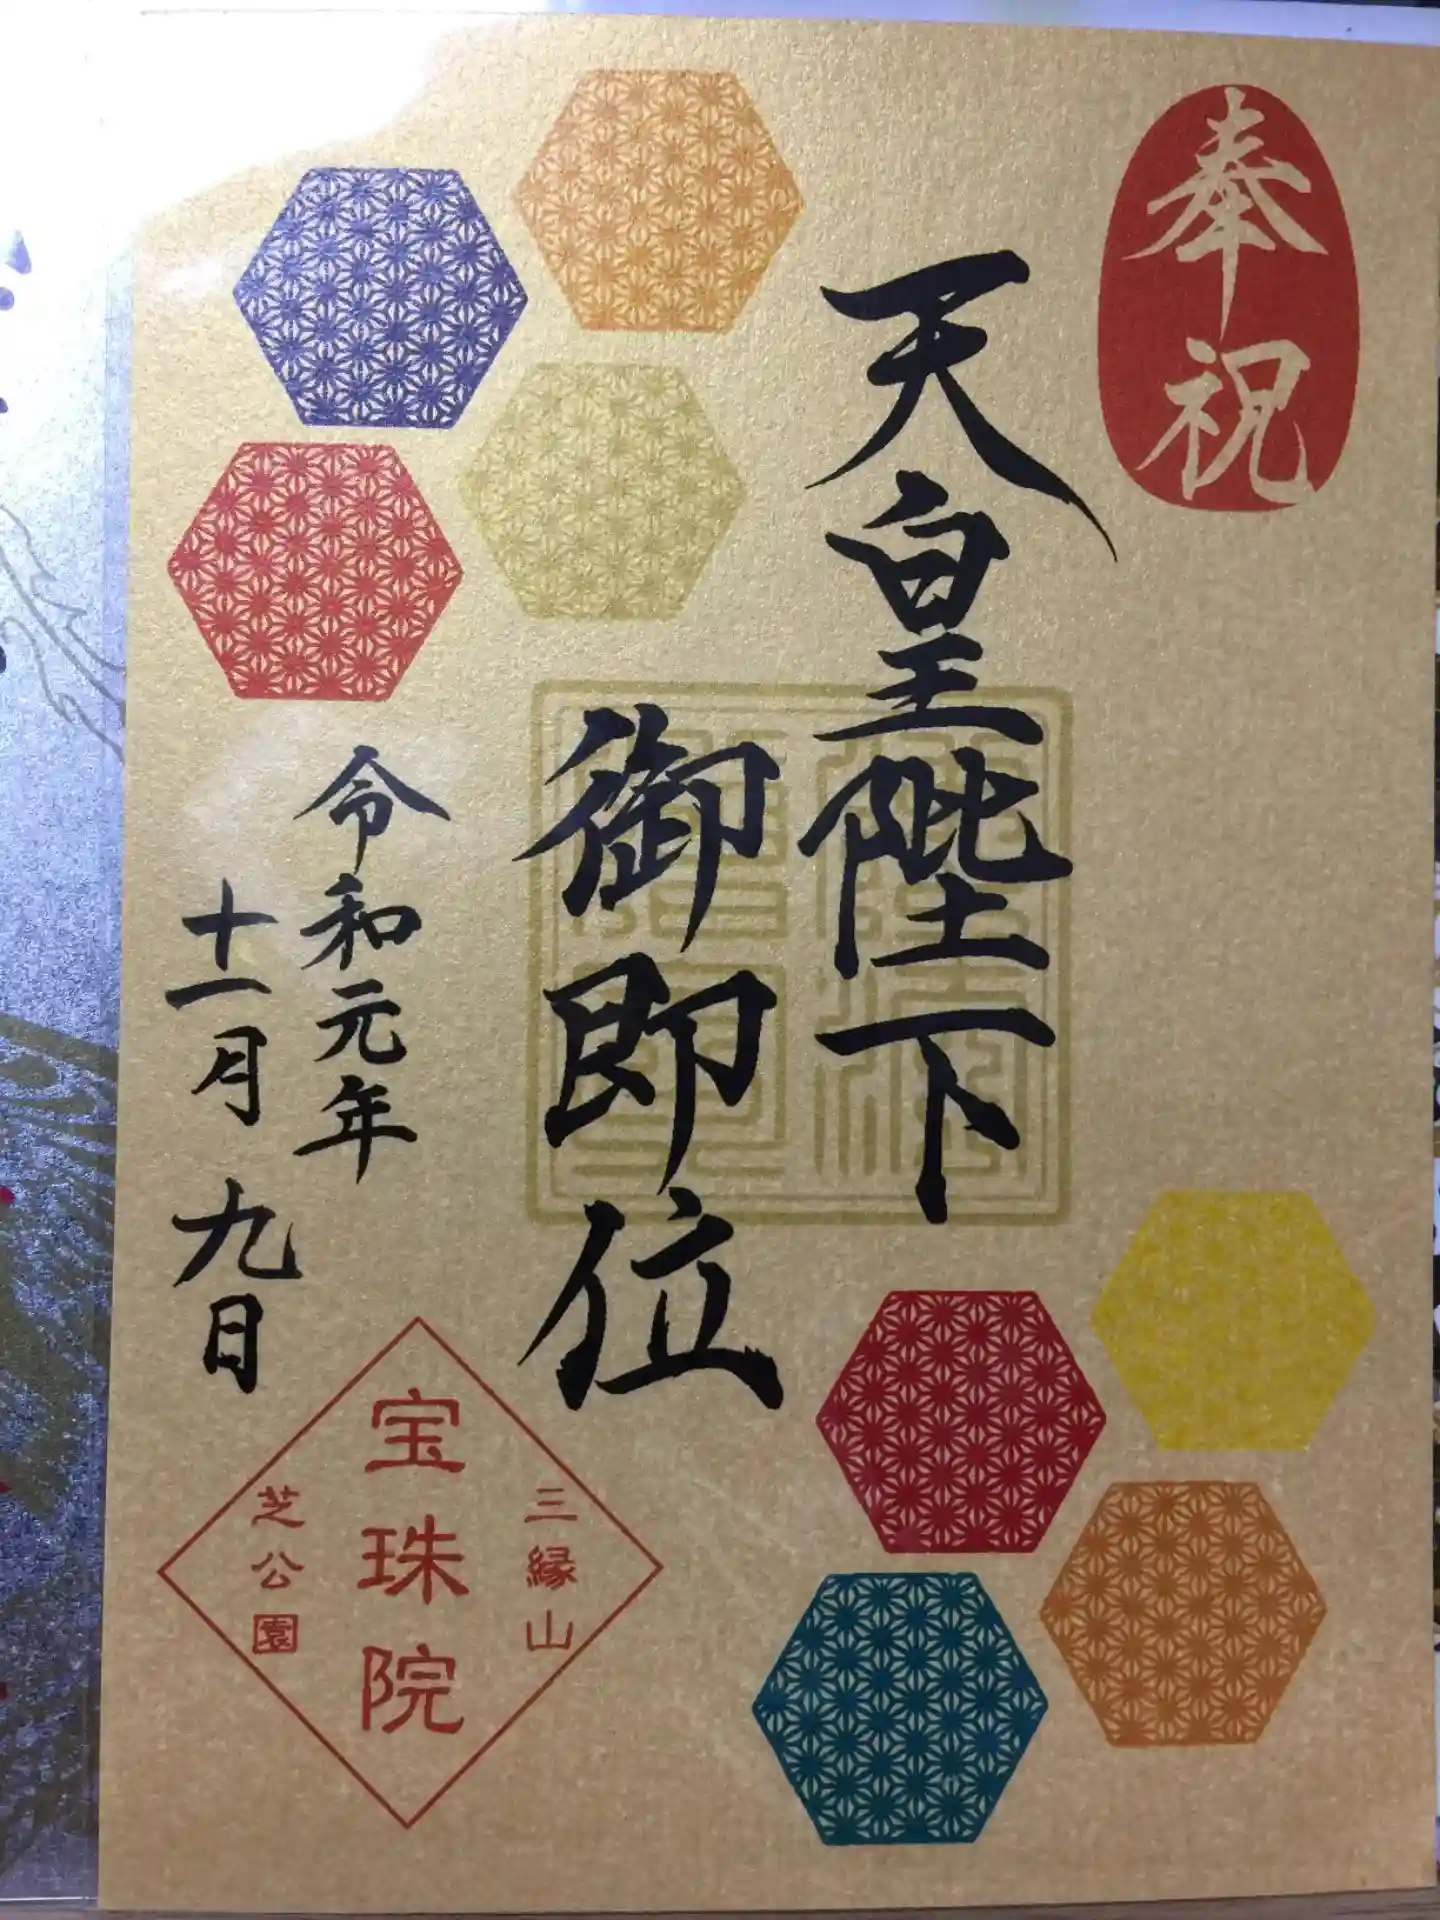 奉祝
天皇陛下
御即位
令和元年
十一月九日
三縁山
宝珠院
芝公園